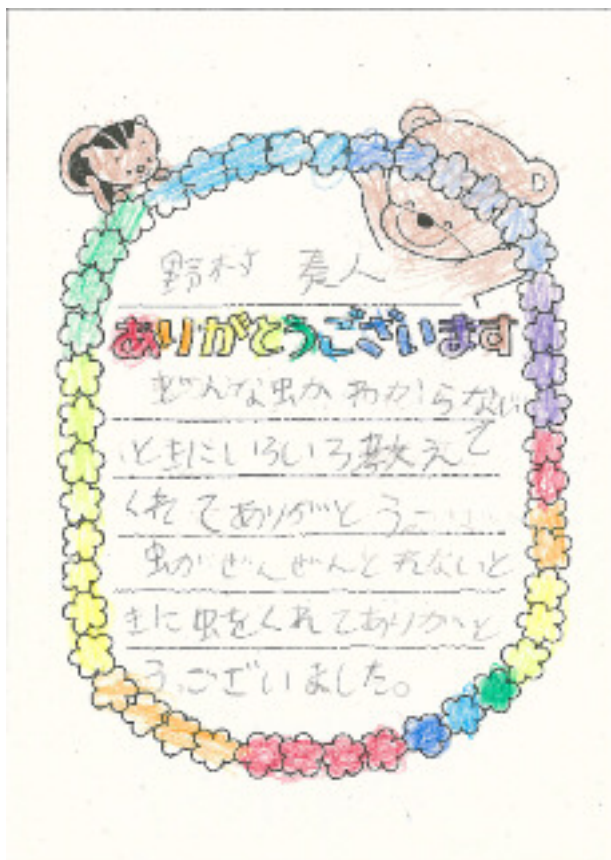 鈴村 奏人
ありがとうございます
どんな虫かわからない
ときにいろいろ教えて
くれてありがとうござい
虫がぜんぜんとれないと
きに虫をくれてありがと
うございました。